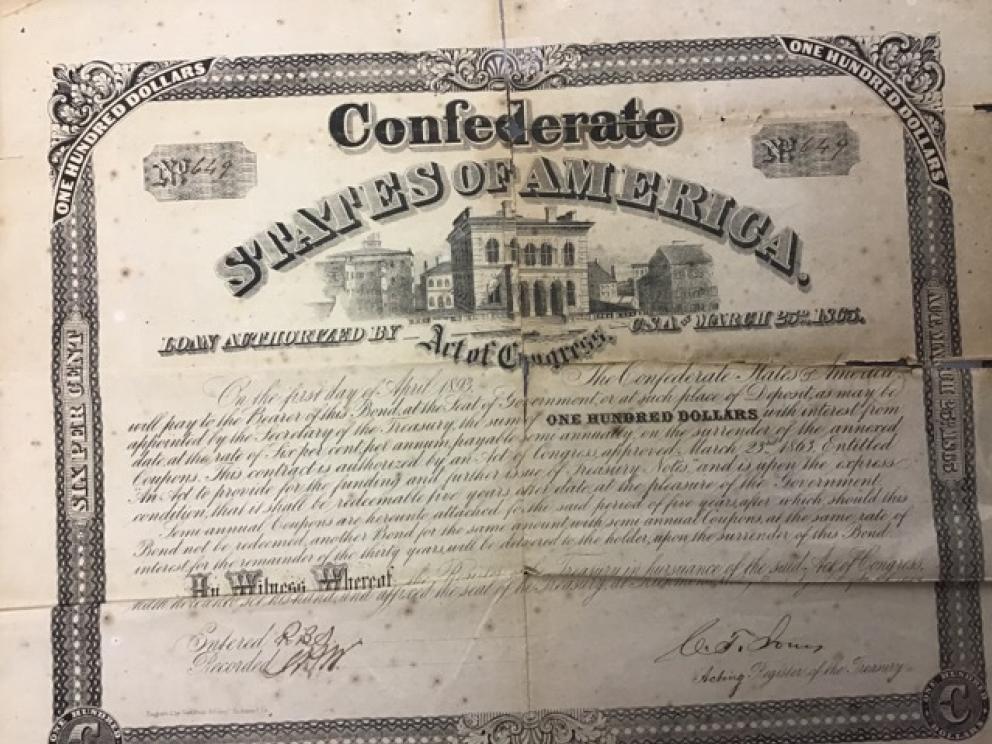 ONE HUNDRED DOLLARS
ONE HUNDRED DOLLARS
Confederate
No 649
No 649
STATES OF AMERICA.
LOAN AUTHORIZED BY Act of Congress, C.S.A. OF MARCH 23RD 1863.
On the first day of April 1893, The Confederate States of America
will pay to the Bearer of this Bond, at the Seat of Government, or at such place of Deposit, as may be
appointed by the Secretary of the Treasury, the sum of ONE HUNDRED DOLLARS with interest from
date, at the rate of Six per cent, per annum, payable semi annually, on the surrender of the annexed
Coupons. This contract is authorized by an Act of Congress, approved March 23rd 1863, Entitled
"An Act to provide for the funding and further issue of Treasury Notes," and is upon the express
condition, that it shall be redeemable five years after date, at the pleasure of the Government.
Semi annual Coupons are hereunto attached for the said period of five years, after which should this
Bond not be redeemed, another Bond for the same amount, with semi annual Coupons, at the same rate of
interest for the remainder of the thirty years, will be delivered to the holder, upon the surrender of this Bond.
In Witness Whereof, the Register Treasury in pursuance of the said Act of Congress,
hath hereunto set his hand, and affixed the seal of the Treasury, at
Entered
Recorded
Acting Register of the Treasury
SIX PER CENT
SIX PER CENT
ONE HUNDRED
C
ONE HUNDRED DOLLARS